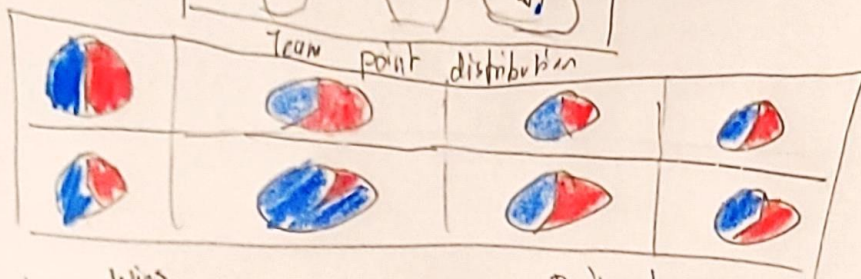 Team point distribution